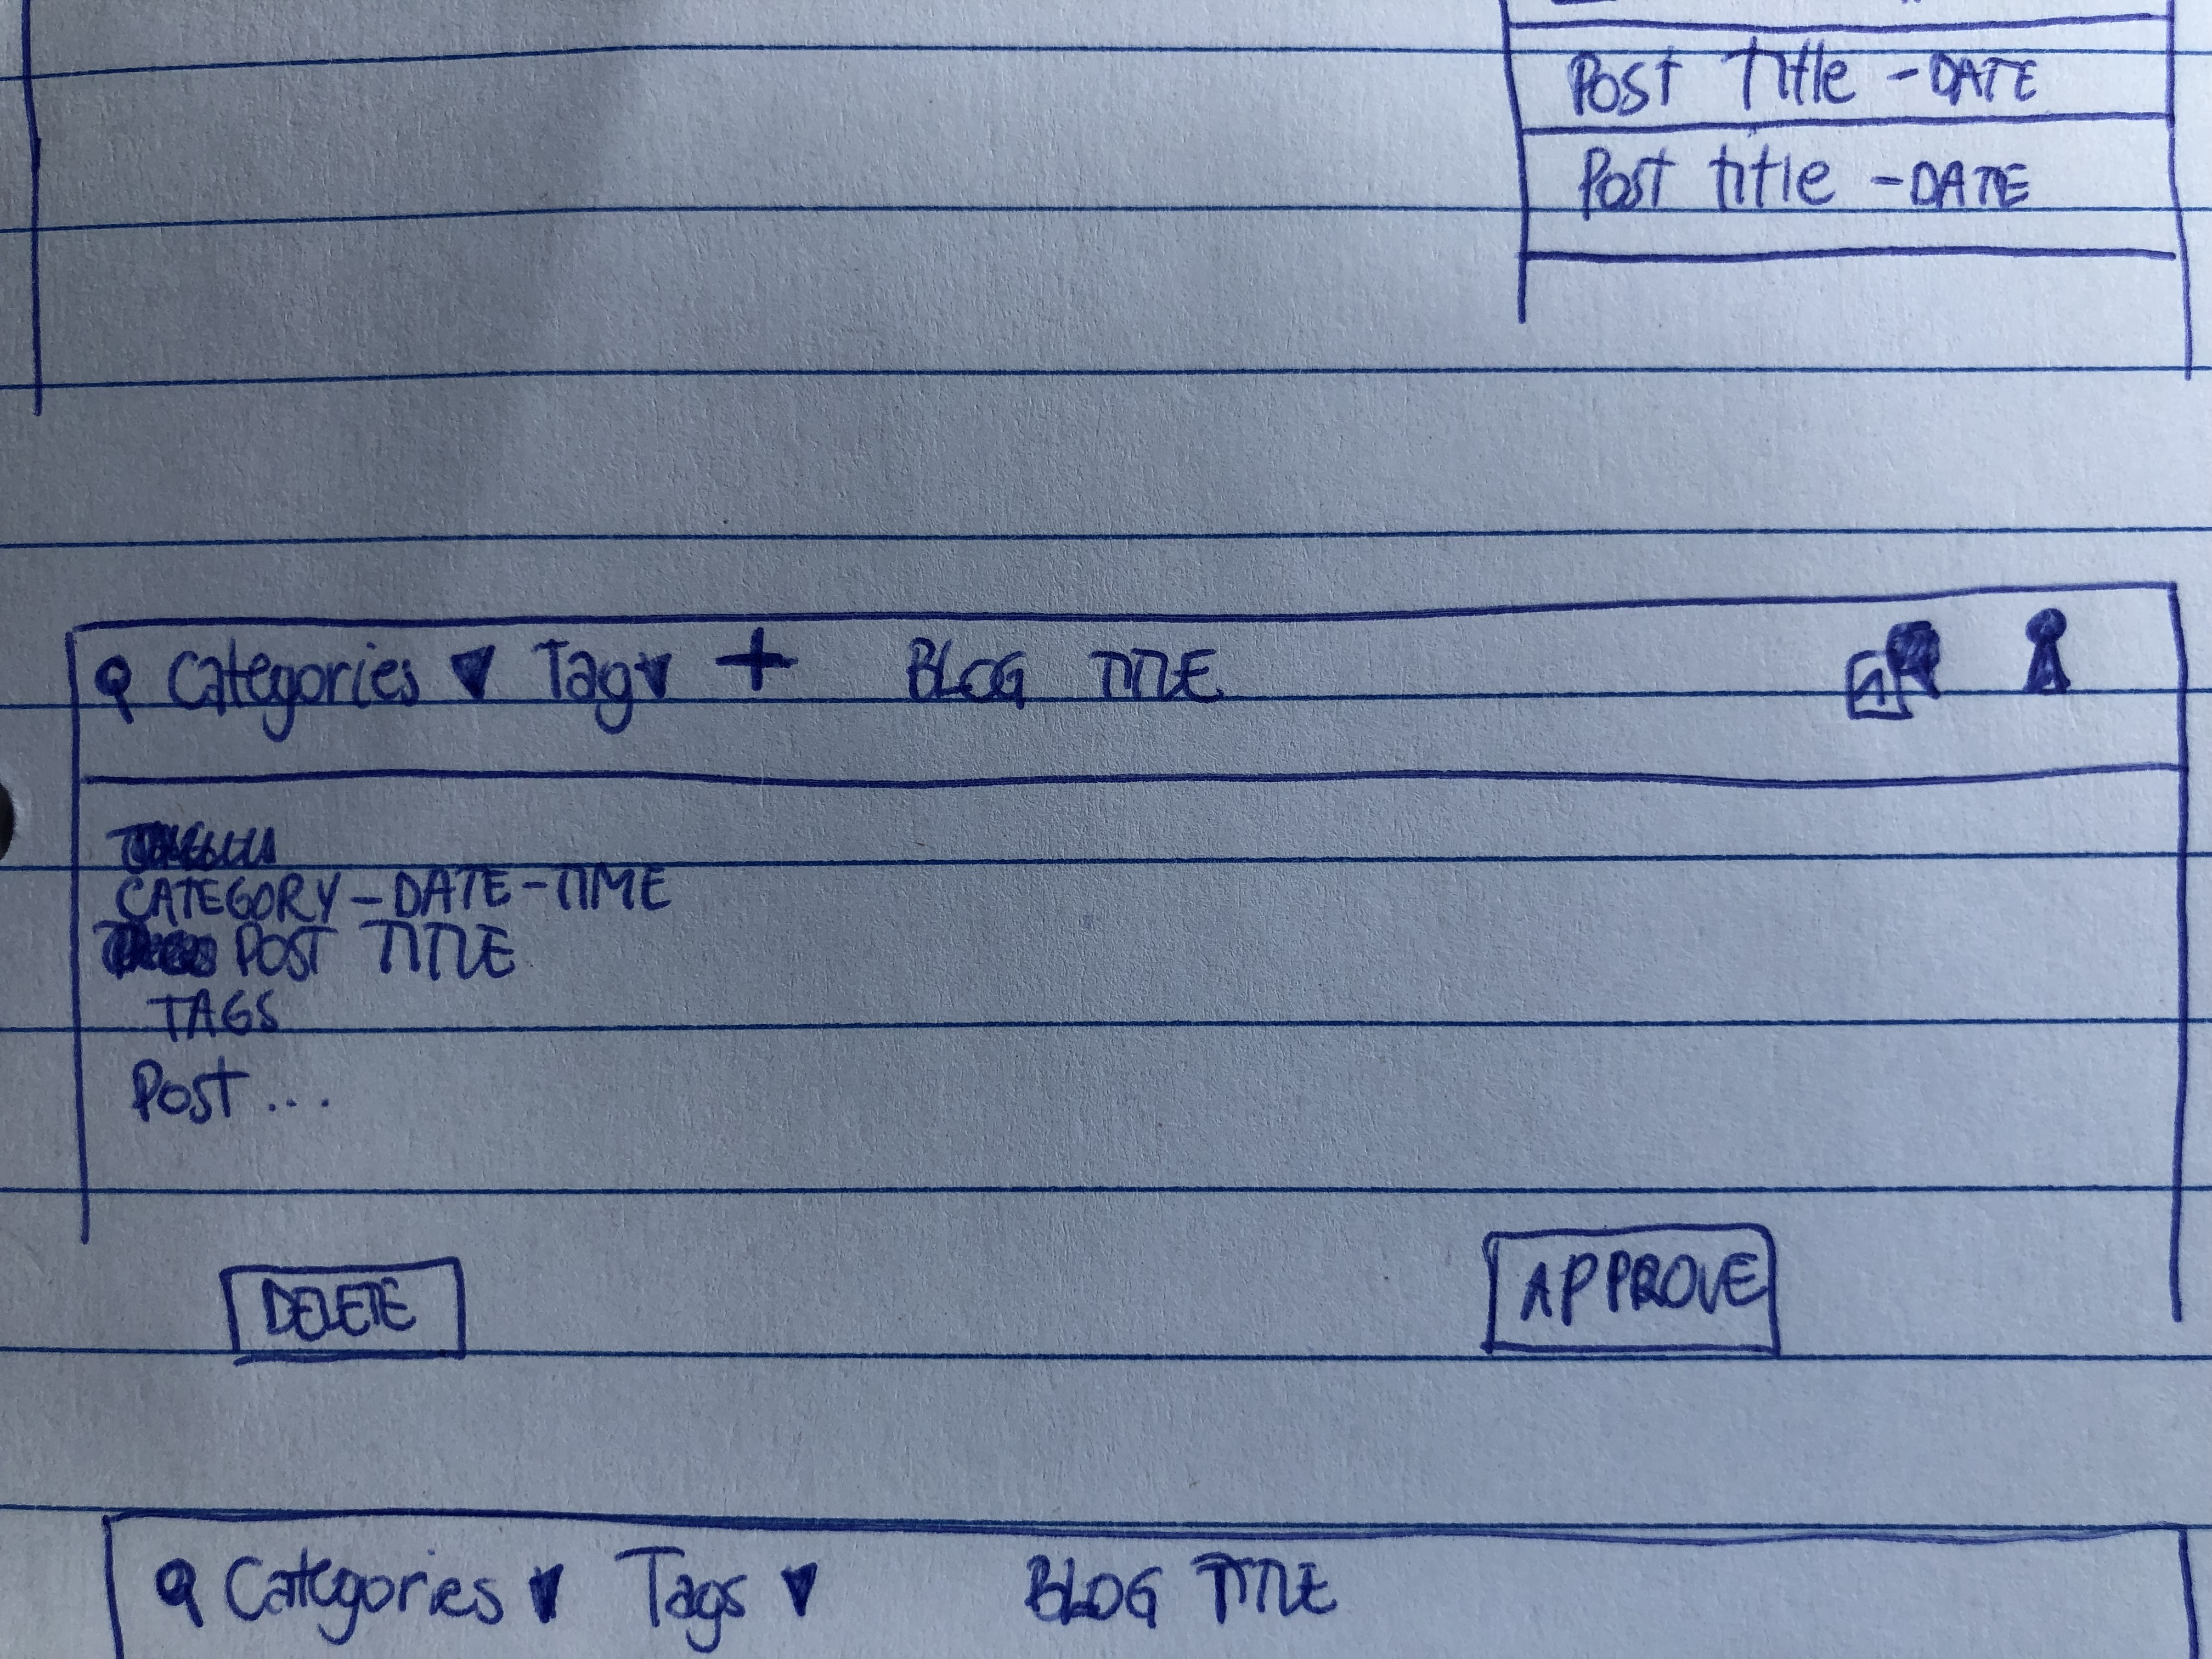 Post Title - DATE
Post title - DATE
Categories Tag BLOG TITLE
CATEGORY - DATE - TIME
POST TITLE
TAGS
Post ...
DELETE APPROVE
Categories Tags BLOG TITLE